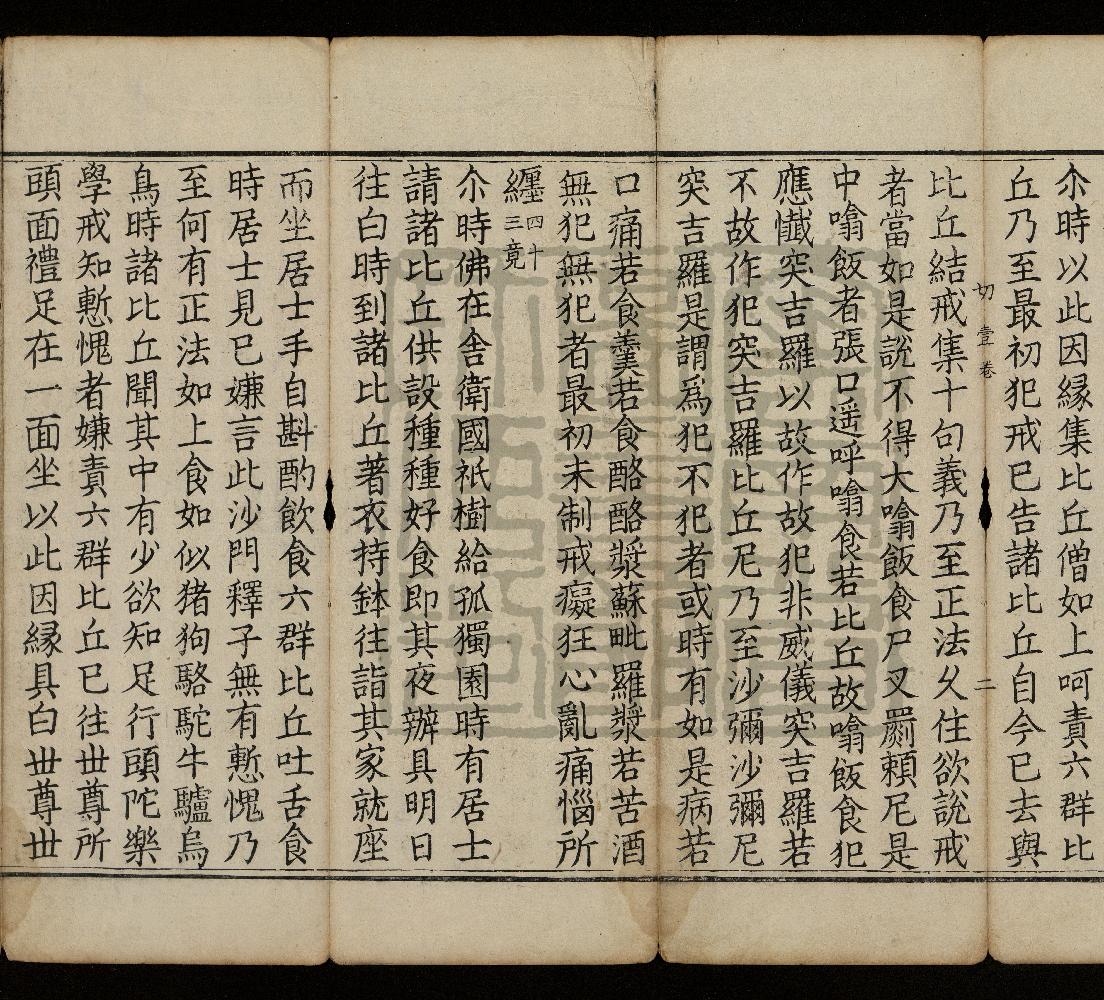 尒時以此因緣集比丘僧如上呵責六群比
丘乃至最初犯戒已告諸比丘自今已去與
切 壹卷 二
比丘結戒集十句義乃至正法久住欲說戒
者當如是說不得大噏飯食尸叉罽頼尼是
中噏飯者張口遥呼噏食若比丘故噏飯食犯
應懺突吉羅以故作故犯非威儀突吉羅若
不故作犯突吉羅比丘尼乃至沙彌沙彌尼
突吉羅是謂爲犯不犯者或時有如是病若
口痛若食羹若食酪酪漿蘇毗羅漿若苦酒
無犯無犯者最初未制戒癡狂心亂痛惱所
纏四十三竟
尒時佛在舍衛國祇樹給孤獨園時有居士
請諸比丘供設種種好食即其夜辦具明日
往白時到諸比丘著衣持鉢往詣其家就座
而坐居士手自斟酌飲食六群比丘吐舌食
時居士見已嫌言此沙門釋子無有慙愧乃
至何有正法如上食如似猪狗駱駝牛驢烏
鳥時諸比丘聞其中有少欲知足行頭陀樂
學戒知慙愧者嫌責六群比丘已往丗尊所
頭面禮足在一面坐以此因緣具白丗尊丗